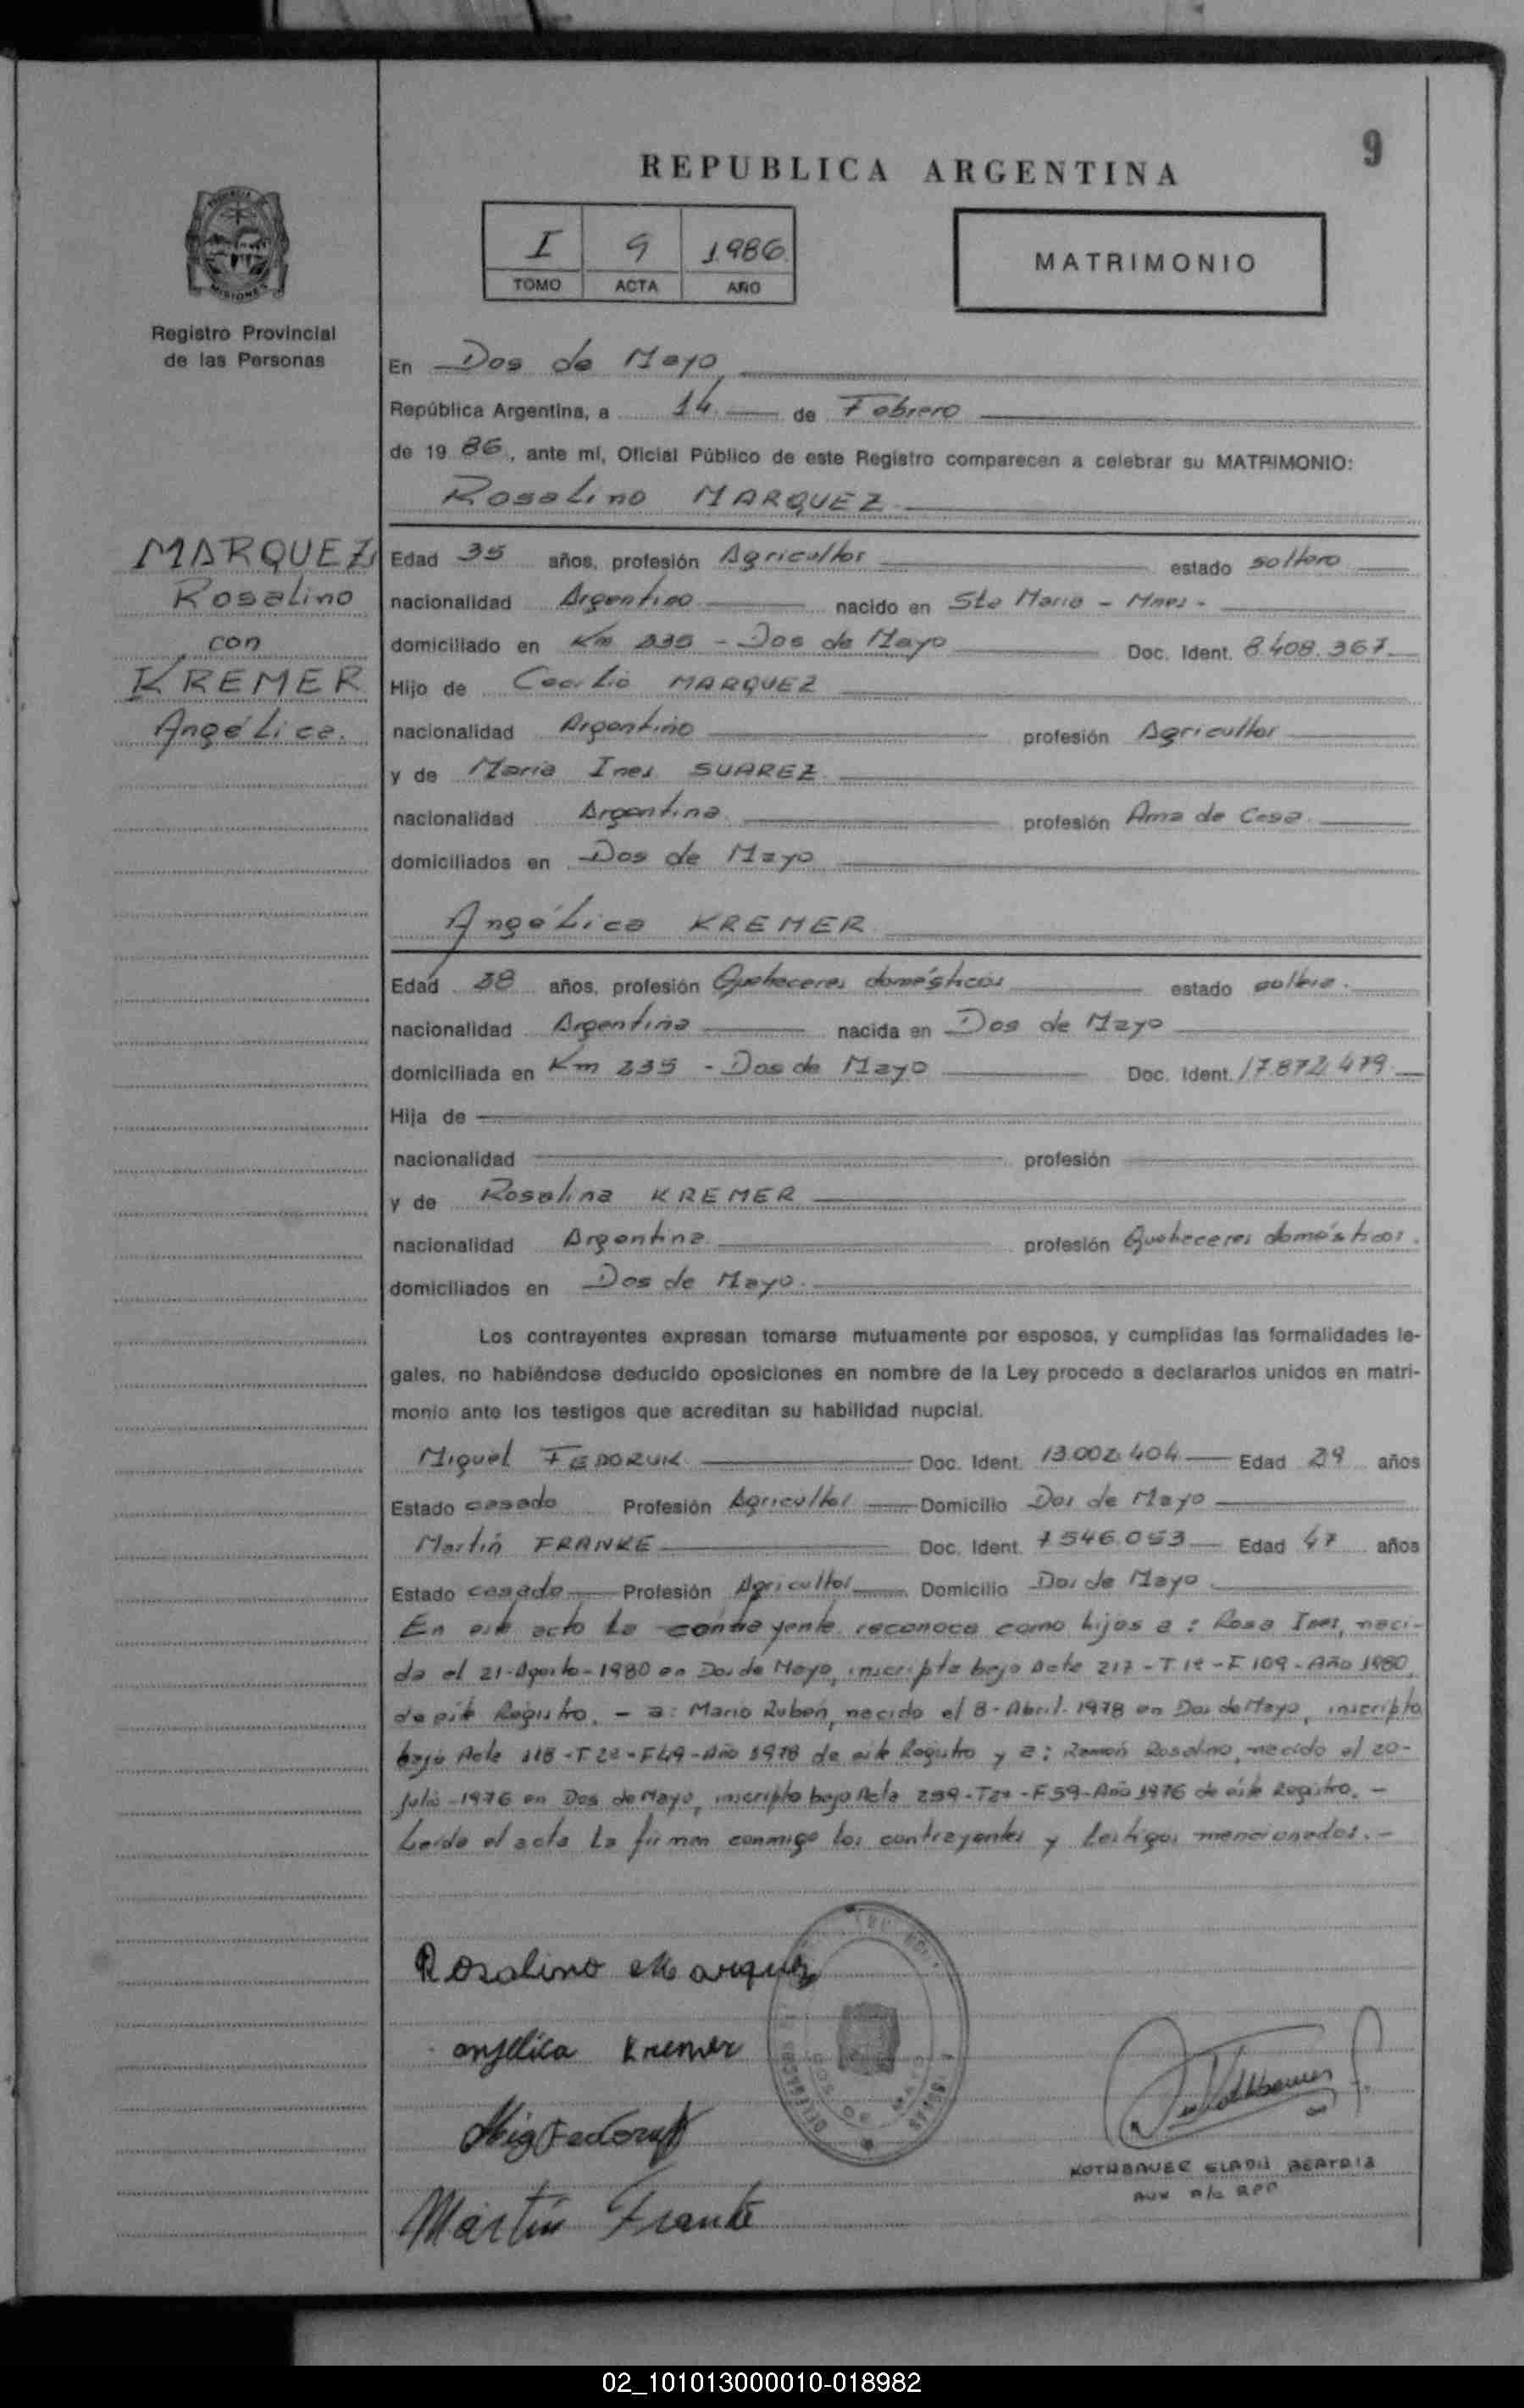 9
REPUBLICA ARGENTINA
I 9 1986
TOMO ACTA AÑO
MATRIMONIO
MISIONES
Registro Provincial
de las Personas
En Dos de Mayo
República Argentina, a 14 de Febrero
de 19 86, ante mí, Oficial Público de este Registro comparecen a celebrar su MATRIMONIO:
Rosalino MARQUEZ
MARQUEZ
Rosalino
con
KREMER
Angélica.
Edad 35 años, profesión Agricultor estado soltero
nacionalidad Argentino nacido en Sta Maria - Mnes -
domiciliado en Km 235 - Dos de Mayo Doc. Ident. 8.408.367
Hijo de Cecilio MARQUEZ
nacionalidad Argentino profesión Agricultor
y de Maria Ines SUAREZ
nacionalidad Argentina profesión Ama de Casa
domiciliados en Dos de Mayo
Angélica KREMER
Edad 28 años, profesión Quehaceres domésticos estado soltera.
nacionalidad Argentina nacida en Dos de Mayo
domiciliada en Km 235 - Dos de Mayo Doc. Ident. 17.872.479
Hija de
nacionalidad profesión
y de Rosalina KREMER
nacionalidad Argentina profesión Quehaceres domésticos.
domiciliados en Dos de Mayo.
Los contrayentes expresan tomarse mutuamente por esposos, y cumplidas las formalidades le-
gales, no habiéndose deducido oposiciones en nombre de la Ley procedo a declararlos unidos en matri-
monio ante los testigos que acreditan su habilidad nupcial.
Miguel FEDORUK Doc. Ident. 13.002.404 Edad 29 años
Estado casado Profesión Agricultor Domicilio Dos de Mayo
Martín FRANKE Doc. Ident. 7546.053 Edad 47 años
Estado casado Profesión Agricultor Domicilio Dos de Mayo
En este acto la contrayente reconoce como hijos a: Rosa Ines, naci-
da el 21-Agosto-1980 en Dos de Mayo, inscripta bajo Acta 217 - T. 1º - F 109 - Año 1980
de este Registro. - a: Mario Ruben, nacido el 8-Abril-1978 en Dos de Mayo, inscripto
bajo Acta 118 - T 2º - F49 - Año 1978 de este Registro y a: Ramón Rosalino, nacido el 20-
Julio-1976 en Dos de Mayo, inscripto bajo Acta 259 - T2º - F59 - Año 1976 de este Registro. -
Leída el acta la firman conmigo los contrayentes y testigos mencionados. -
Rosalino Marquez
anjelica Kremer
Mig Fedoruk
Martín Franke
DOS DE MAYO
KOTHBAUER GLADIS BEATRIZ
AUX a/c RPP
02_101013000010-018982